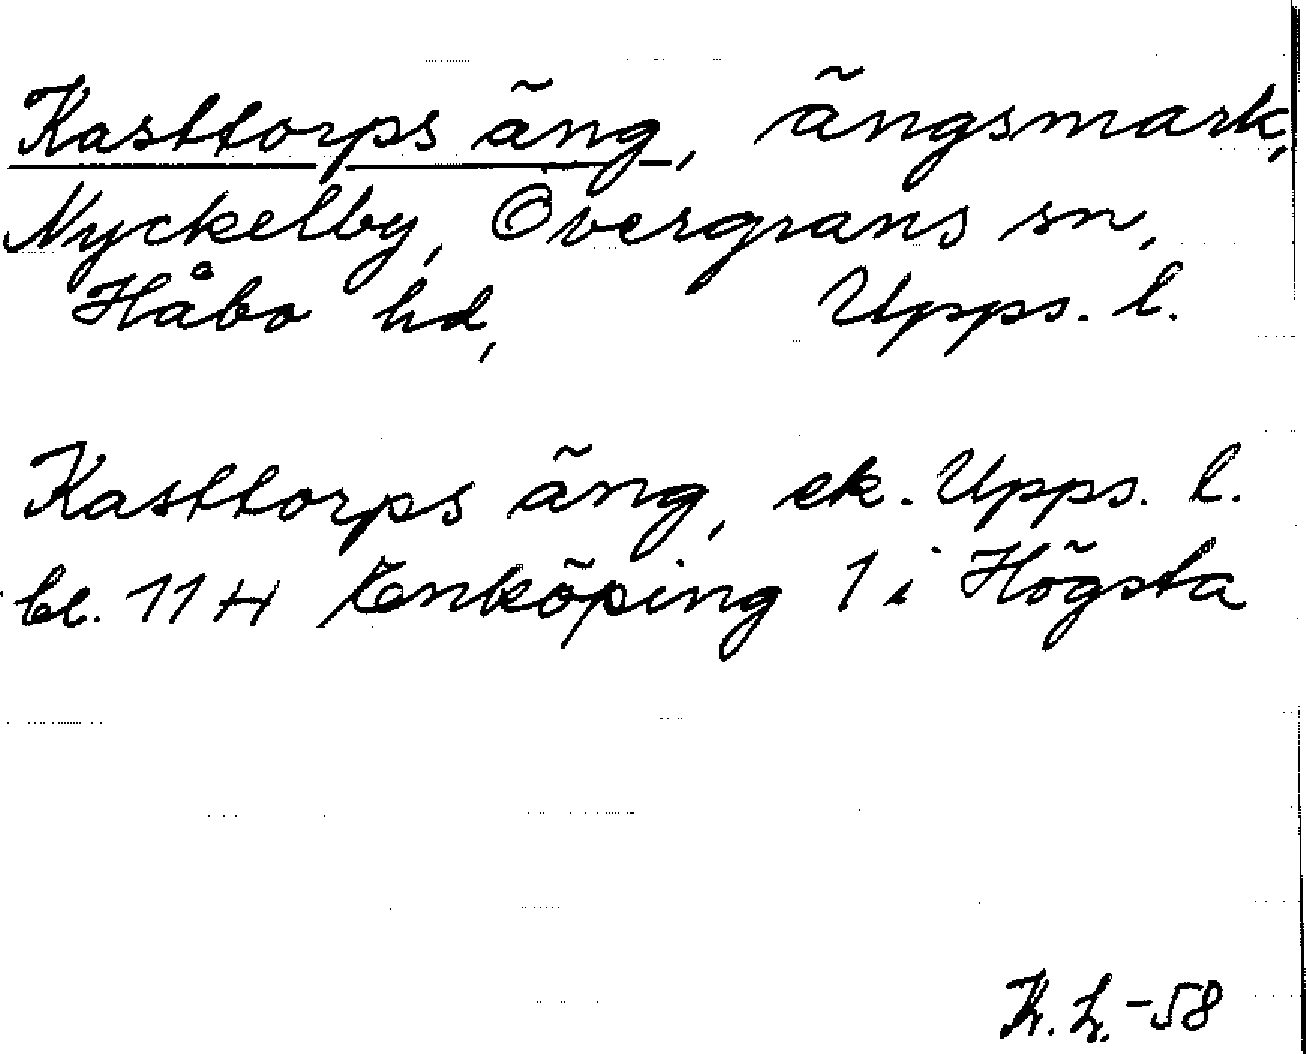 Kasttorps äng, ängsmark,
Nyckelby, Övergrans sn,
Håbo hd, Upps. l.
Kasttorps äng, ek. Upps. l.
bl. 11 H Enköping 1 i Högsta
-58